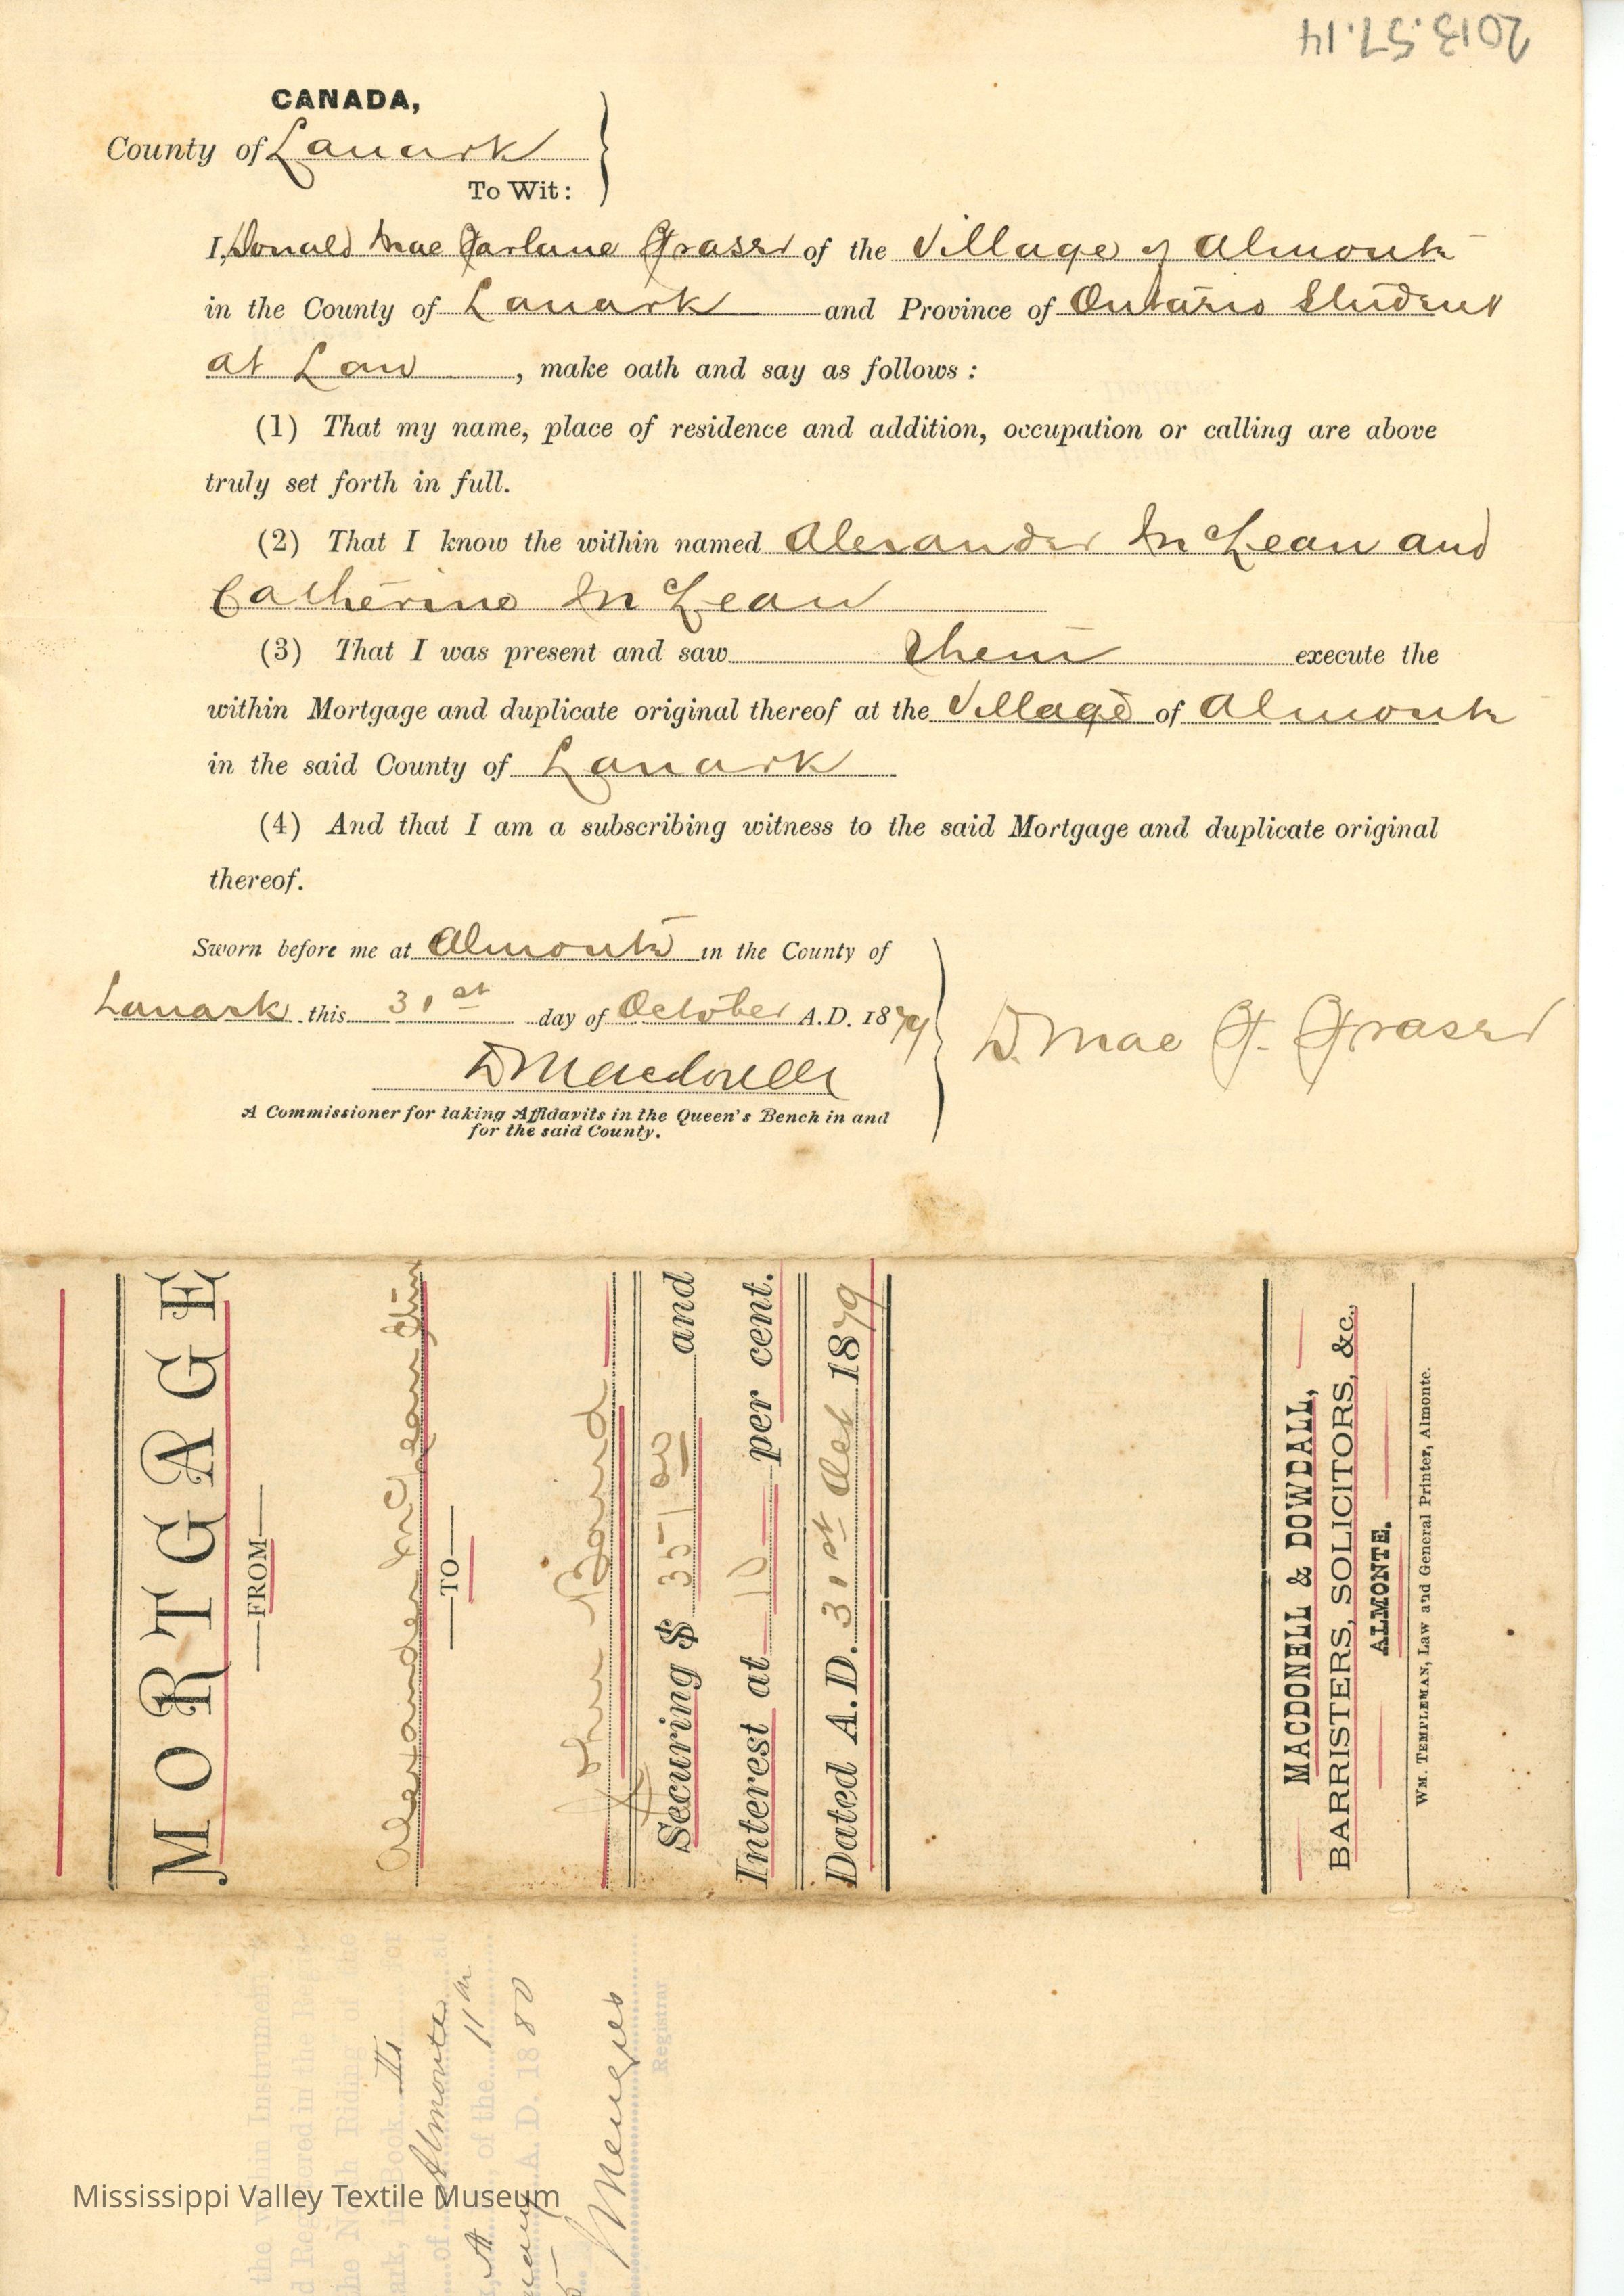 2013.57.14
CANADA,
County of Lanark
To Wit:
I, Donald Mac Farlane Fraser of the Village of Almonte
in the County of Lanark and Province of Ontario Student
at Law, make oath and say as follows:
(1) That my name, place of residence and addition, occupation or calling are above
truly set forth in full.
(2) That I know the within named Alexander McLean and
Catherine McLean
(3) That I was present and saw them execute the
within Mortgage and duplicate original thereof at the Village of Almonte
in the said County of Lanark
(4) And that I am a subscribing witness to the said Mortgage and duplicate original
thereof.
Sworn before me at Almonte in the County of
Lanark this 31st day of October A.D. 1879
D Macdonell
D. Mac F. Fraser
A Commissioner for taking Affidavits in the Queen's Bench in and
for the said County.
MORTGAGE
FROM
Alexander McLean
TO
John Baird
Securing $ 351 00 and
Interest at 10 per cent.
Dated A.D. 31st Oct 1879
MACDONELL & DOWDALL,
BARRISTERS, SOLICITORS, &c.,
ALMONTE.
WM. TEMPLEMAN, Law and General Printer, Almonte.
the within Instrument
Registered in the
the North Riding of the
Book II for
of Almonte at
of the 11th
A.D. 1880
Menzies
Registrar
Mississippi Valley Textile Museum